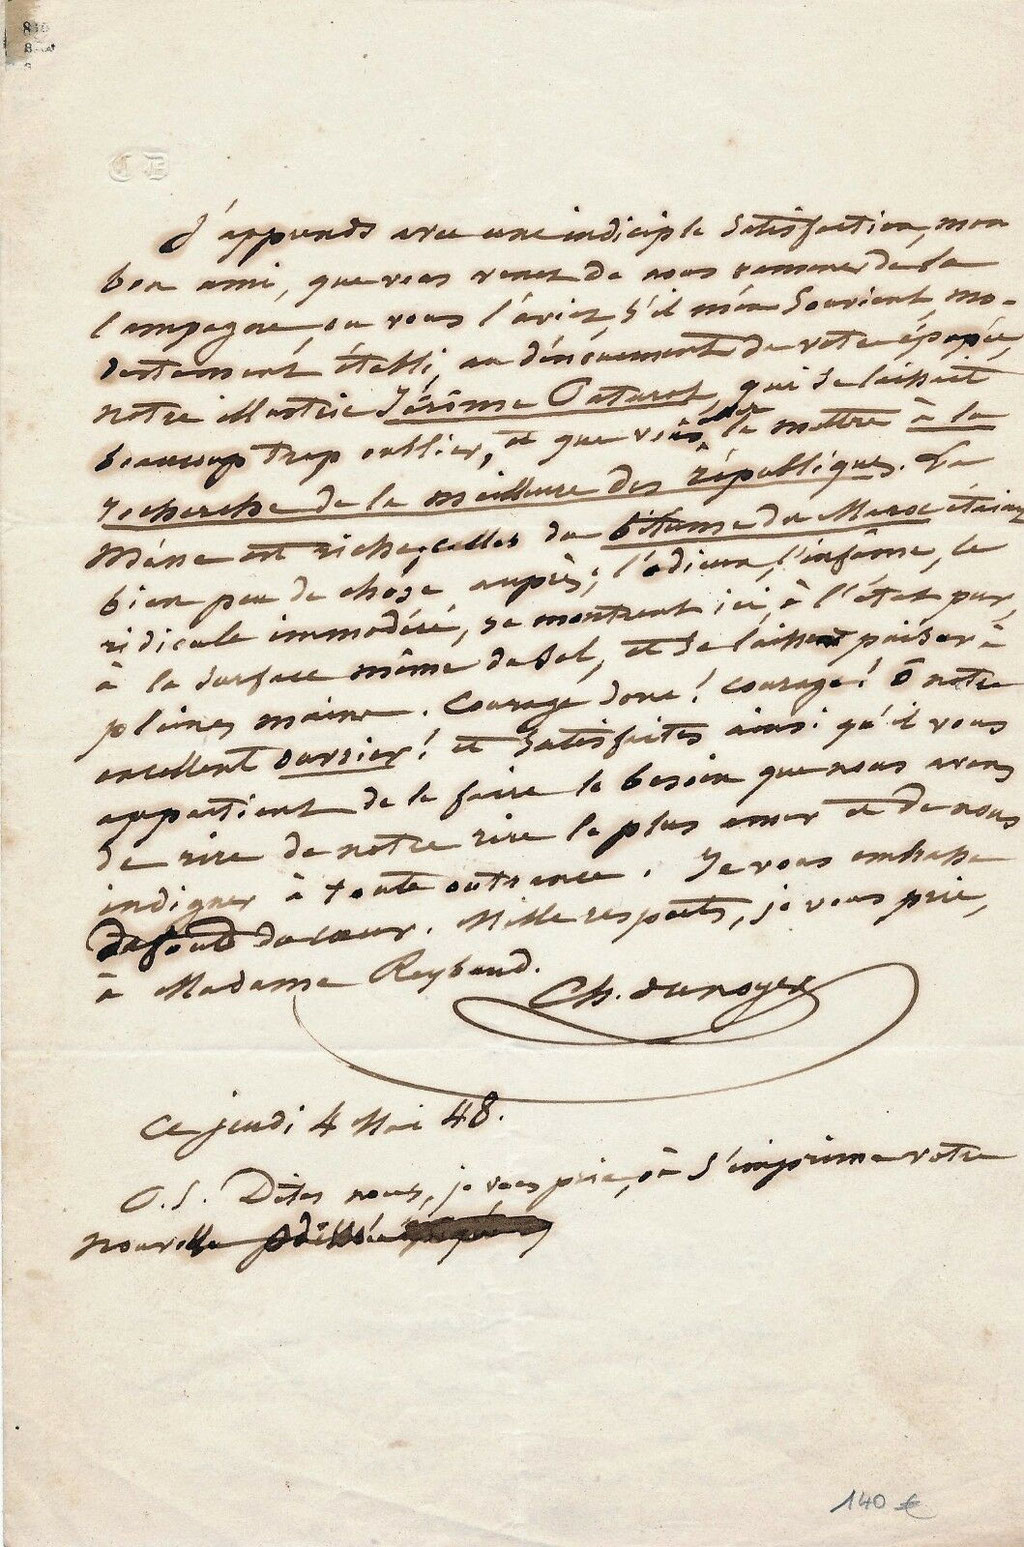 CB
J'apprends avec une indicible satisfaction, mon
bon ami, que vous venez de nous ramener de la
campagne, où vous l'aviez, s'il m'en souvient, mo-
destement établi, au dénouement de votre épopée,
notre illustre Jérôme Paturot, qui se laissait
beaucoup trop oublier, et que vous allez le mettre à la
recherche de la meilleure des républiques. La
Mine est riche; celles du bitume du Maroc étaient
bien peu de chose auprès; l'odieux, l'infâme, le
ridicule immodéré, se montrent ici, à l'état pur,
à la surface même du sol, et se laissent puiser à
pleines mains. Courage donc! courage! ô notre
excellent ouvrier! et satisfaites ainsi qu'il vous
appartient de le faire le besoin que nous avons
de rire de notre rire le plus amer et de nous
indigner à toute outrance. Je vous embrasse
du fond du cœur. Mille respects, je vous prie,
à Madame Reybaud.
Ch. Dunoyer
Ce jeudi 4 Mai 48.
P.S. Dites nous, je vous prie, où s'imprime votre
nouvelle
140 €